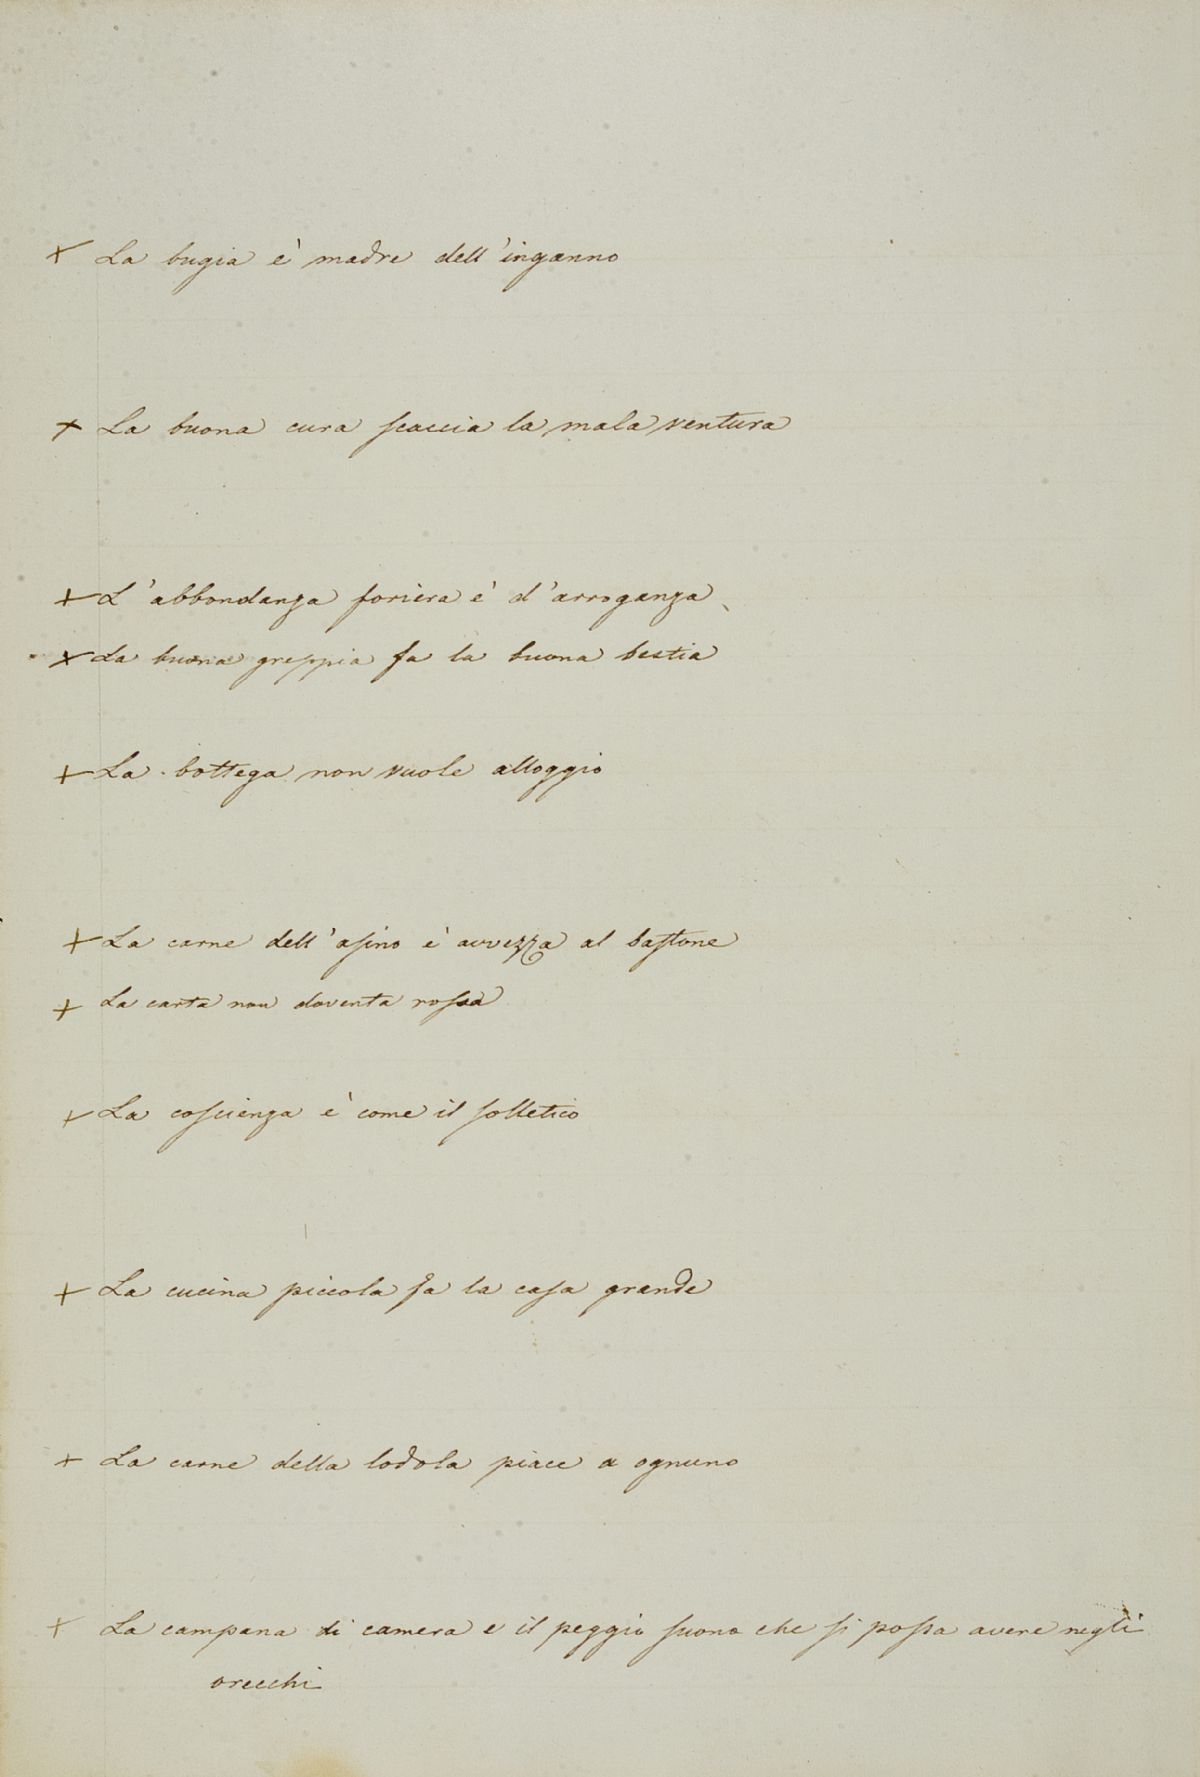 + La bugia è madre dell'inganno
+ La buona cura scaccia la mala ventura
+ L'abbondanza foriera è d'arroganza
+ La buona greppia fa la buona bestia
+ La bottega non vuole alloggio
+ La carne dell'asino è avvezza al bastone
+ La carta non doventa rossa
+ La coscienza è come il solletico
+ La cucina piccola fa la casa grande
+ La carne della lodola piace a ognuno
+ La campana di camera e il peggio suono che si possa avere negli
orecchi